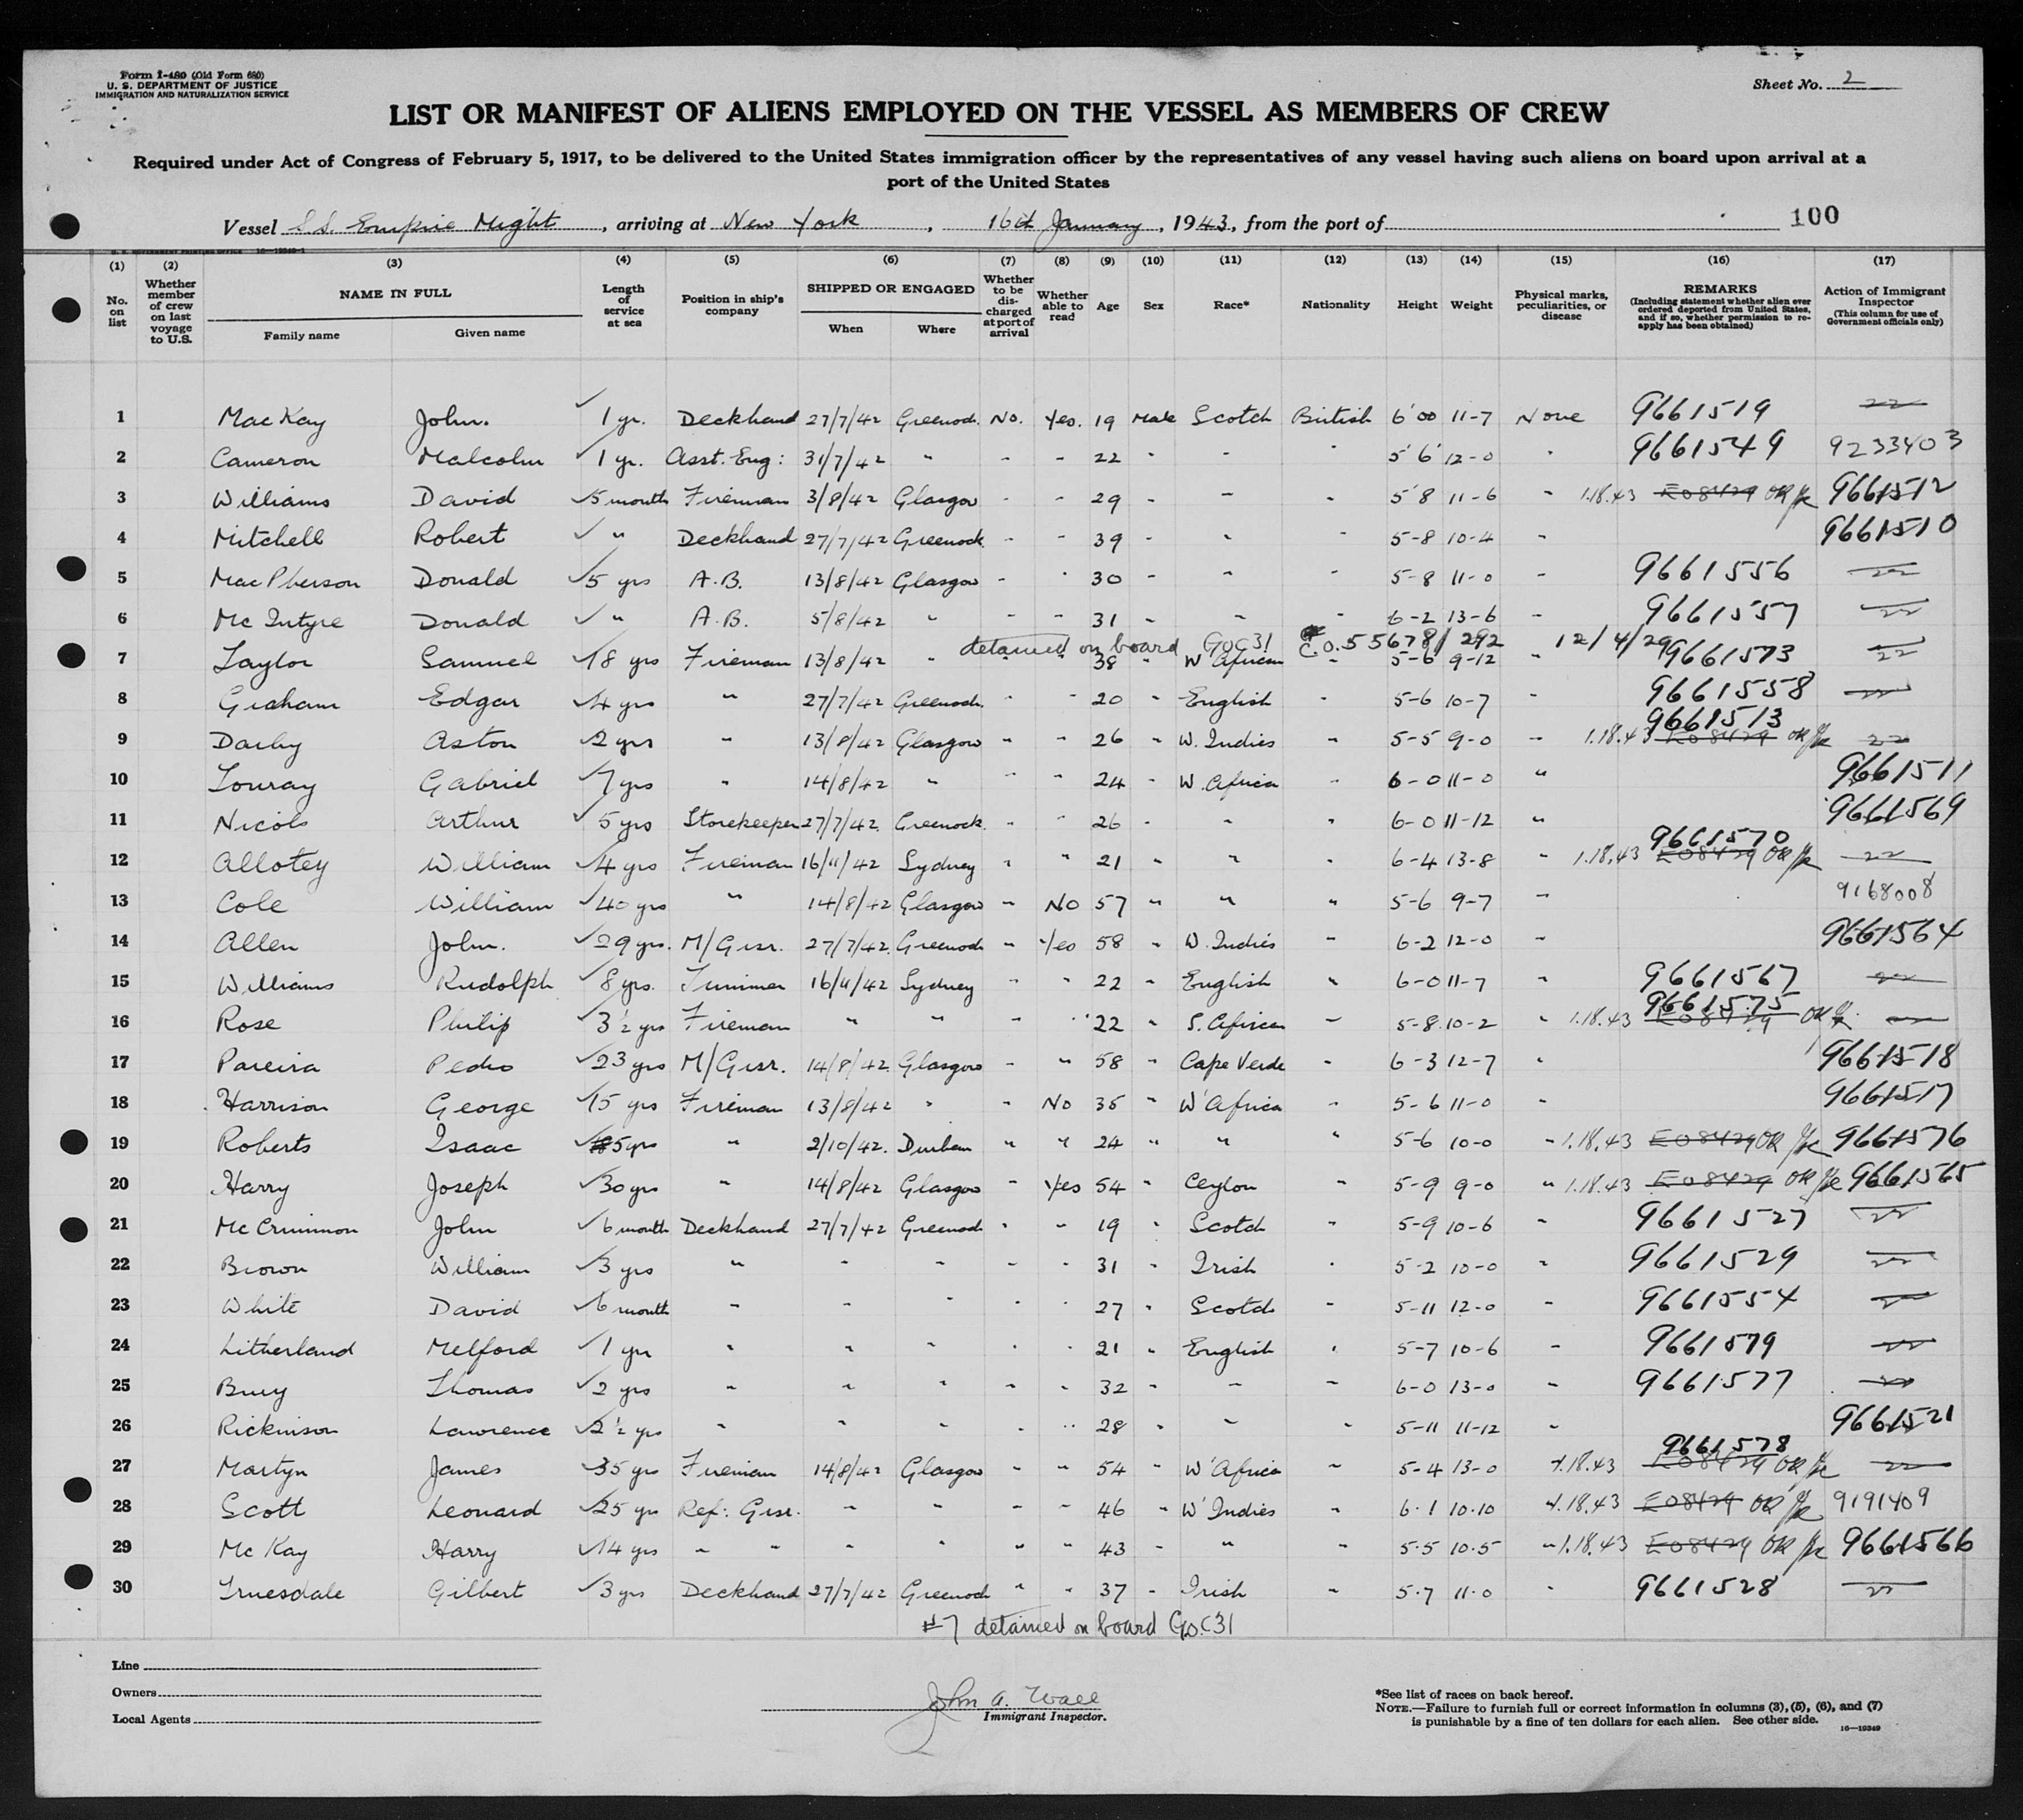 Form I-480 (Old Form 680)
U. S. DEPARTMENT OF JUSTICE
IMMIGRATION AND NATURALIZATION SERVICE
Sheet No. 2
LIST OR MANIFEST OF ALIENS EMPLOYED ON THE VESSEL AS MEMBERS OF CREW
Required under Act of Congress of February 5, 1917, to be delivered to the United States immigration officer by the representatives of any vessel having such aliens on board upon arrival at a
port of the United States
Vessel S.S. Empire Might, arriving at New York, 16th January, 1943, from the port of 100
(1) (2) (3) (4) (5) (6) (7) (8) (9) (10) (11) (12) (13) (14) (15) (16) (17)
No. on list
Whether member of crew on last voyage to U.S.
NAME IN FULL
Family name Given name
Length of service at sea
Position in ship's company
SHIPPED OR ENGAGED
When Where
Whether to be discharged at port of arrival
Whether able to read
Age
Sex
Race*
Nationality
Height
Weight
Physical marks, peculiarities, or disease
REMARKS
(Including statement whether alien ever ordered deported from United States, and if so, whether permission to reapply has been obtained)
Action of Immigrant Inspector
(This column for use of Government officials only)
1 MacKay John. ✓ 1 yr. Deckhand 27/7/42 Greenock. No. Yes. 19 Male Scotch British 6'00 11-7 None 9661519
2 Cameron Malcolm ✓ 1 yr. Asst. Eng: 31/7/42 " - - 22 " - " 5'6 12-0 " 9661549 9233403
3 Williams David ✓ 5 month Fireman 3/8/42 Glasgow - - 29 - - " 5'8 11-6 " 1.18.43 E08429 OK 9661512
4 Mitchell Robert ✓ " Deckhand 27/7/42 Greenock - - 39 - " " 5-8 10-4 " 9661510
5 MacPherson Donald ✓ 5 yrs A.B. 13/8/42 Glasgow - " 30 - " " 5-8 11-0 - 9661556
6 McIntyre Donald ✓ " A.B. 5/8/42 " - - 31 - - " 6-2 13-6 - 9661557
detained on board GoC31 C.O. 55678/292 12/4/29
7 Taylor Samuel ✓ 18 yrs Fireman 13/8/42 " " " 38 " W African - 5-6 9-12 " 9661573
8 Graham Edgar ✓ 4 yrs " 27/7/42 Greenock " " 20 " English " 5-6 10-7 - 9661558
9 Darby Aston ✓ 2 yrs " 13/8/42 Glasgow " " 26 " W. Indies " 5-5 9-0 - 1.18.43 9661513 E08429 OK
10 Touray Gabriel ✓ 7 yrs " 14/8/42 " " " 24 - W. Africa - 6-0 11-0 " 9661511
11 Nicols Arthur ✓ 5 yrs Storekeeper 27/7/42 Greenock. - " 26 - " " 6-0 11-12 " 9661569
12 Allotey William ✓ 4 yrs Fireman 16/11/42 Sydney " " 21 " " " 6-4 13-8 " 1.18.43 9661570 E08429 OK
13 Cole William ✓ 40 yrs " 14/8/42 Glasgow " No 57 " " " 5-6 9-7 - 9168008
14 Allen John. ✓ 29 yrs. M/Gisr. 27/7/42 Greenock " Yes 58 " W. Indies " 6-2 12-0 - 9661564
15 Williams Rudolph ✓ 8 yrs. Trimmer 16/11/42 Sydney " " 22 " English " 6-0 11-7 " 9661567
16 Rose Philip ✓ 3½ yrs Fireman " " " " 22 " S. African - 5-8 10-2 " 1.18.43 9661575 E08429 OK
17 Pareira Pedro ✓ 23 yrs M/Gisr. 14/8/42 Glasgow - " 58 " Cape Verde " 6-3 12-7 " 9661518
18 Harrison George ✓ 15 yrs Fireman 13/8/42 " " No 35 " W Africa " 5-6 11-0 - 9661517
19 Roberts Isaac ✓ 5 yrs " 2/10/42. Durban " " 24 " " " 5-6 10-0 " 1.18.43 E08429 OK 9661576
20 Harry Joseph ✓ 30 yrs " 14/8/42 Glasgow " Yes 54 " Ceylon " 5-9 9-0 " 1.18.43 E08429 OK 9661565
21 McCrimmon John ✓ 6 month Deckhand 27/7/42 Greenock " " 19 " Scotch " 5-9 10-6 " 9661527
22 Brown William ✓ 3 yrs " " " " " 31 " Irish " 5-2 10-0 " 9661529
23 White David ✓ 6 month " " " " " 27 " Scotch " 5-11 12-0 - 9661554
24 Litherland Melford ✓ 1 yr " " " " " 21 " English " 5-7 10-6 - 9661579
25 Bury Thomas ✓ 2 yrs " " " " " 32 - - " 6-0 13-0 - 9661577
26 Rickinson Lawrence ✓ 2½ yrs " " " " " 28 " - " 5-11 11-12 " 9661521
27 Martyn James 35 yrs Fireman 14/8/42 Glasgow " " 54 " W Africa " 5-4 13-0 1.18.43 9661578 E08429 OK
28 Scott Leonard ✓ 25 yrs Ref: Gisr. " " " " 46 " W Indies " 6.1 10.10 1.18.43 E08429 OK 9191409
29 McKay Harry ✓ 14 yrs " " " " " " 43 - " " 5.5 10.5 " 1.18.43 E08429 OK 9661566
30 Truesdale Gilbert ✓ 3 yrs Deckhand 27/7/42 Greenock " " 37 - Irish " 5.7 11.0 " 9661528
#7 detained on board GoC31
Line
Owners
Local Agents
John A. Wall
Immigrant Inspector.
*See list of races on back hereof.
NOTE.—Failure to furnish full or correct information in columns (3), (5), (6), and (7)
is punishable by a fine of ten dollars for each alien. See other side. 16—19349